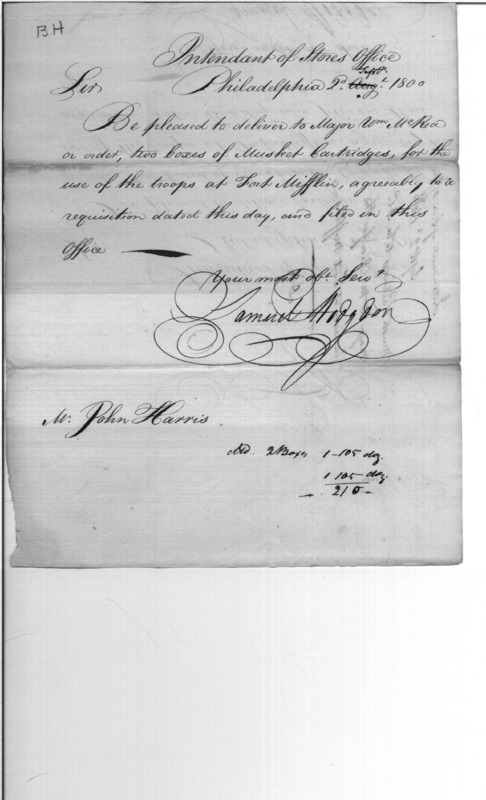 BH
Intendant of Stores Office
Sept.
Sir Philadelphia 2d. Aug.t 1800
Be pleased to deliver to Major Wm McRea
or order, two boxes of Musket Cartridges, for the
use of the troops at Fort Mifflin, agreeably to a
requisition dated this day, and filed in this
Office
Your most obt Servt
Samuel Hodgdon
Mr. John Harris
2 Boxes 1-105 doz.
1 105 doz.
210